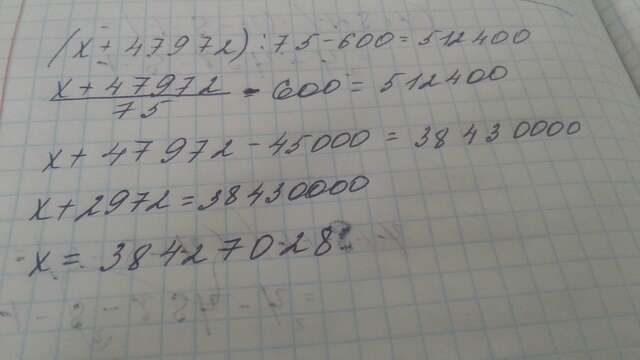 (x + 47972) : 75 - 600 = 512400
x + 47972
75
- 600 = 512400
x + 47972 - 45000 = 38430000
x + 2972 = 38430000
x = 38427028